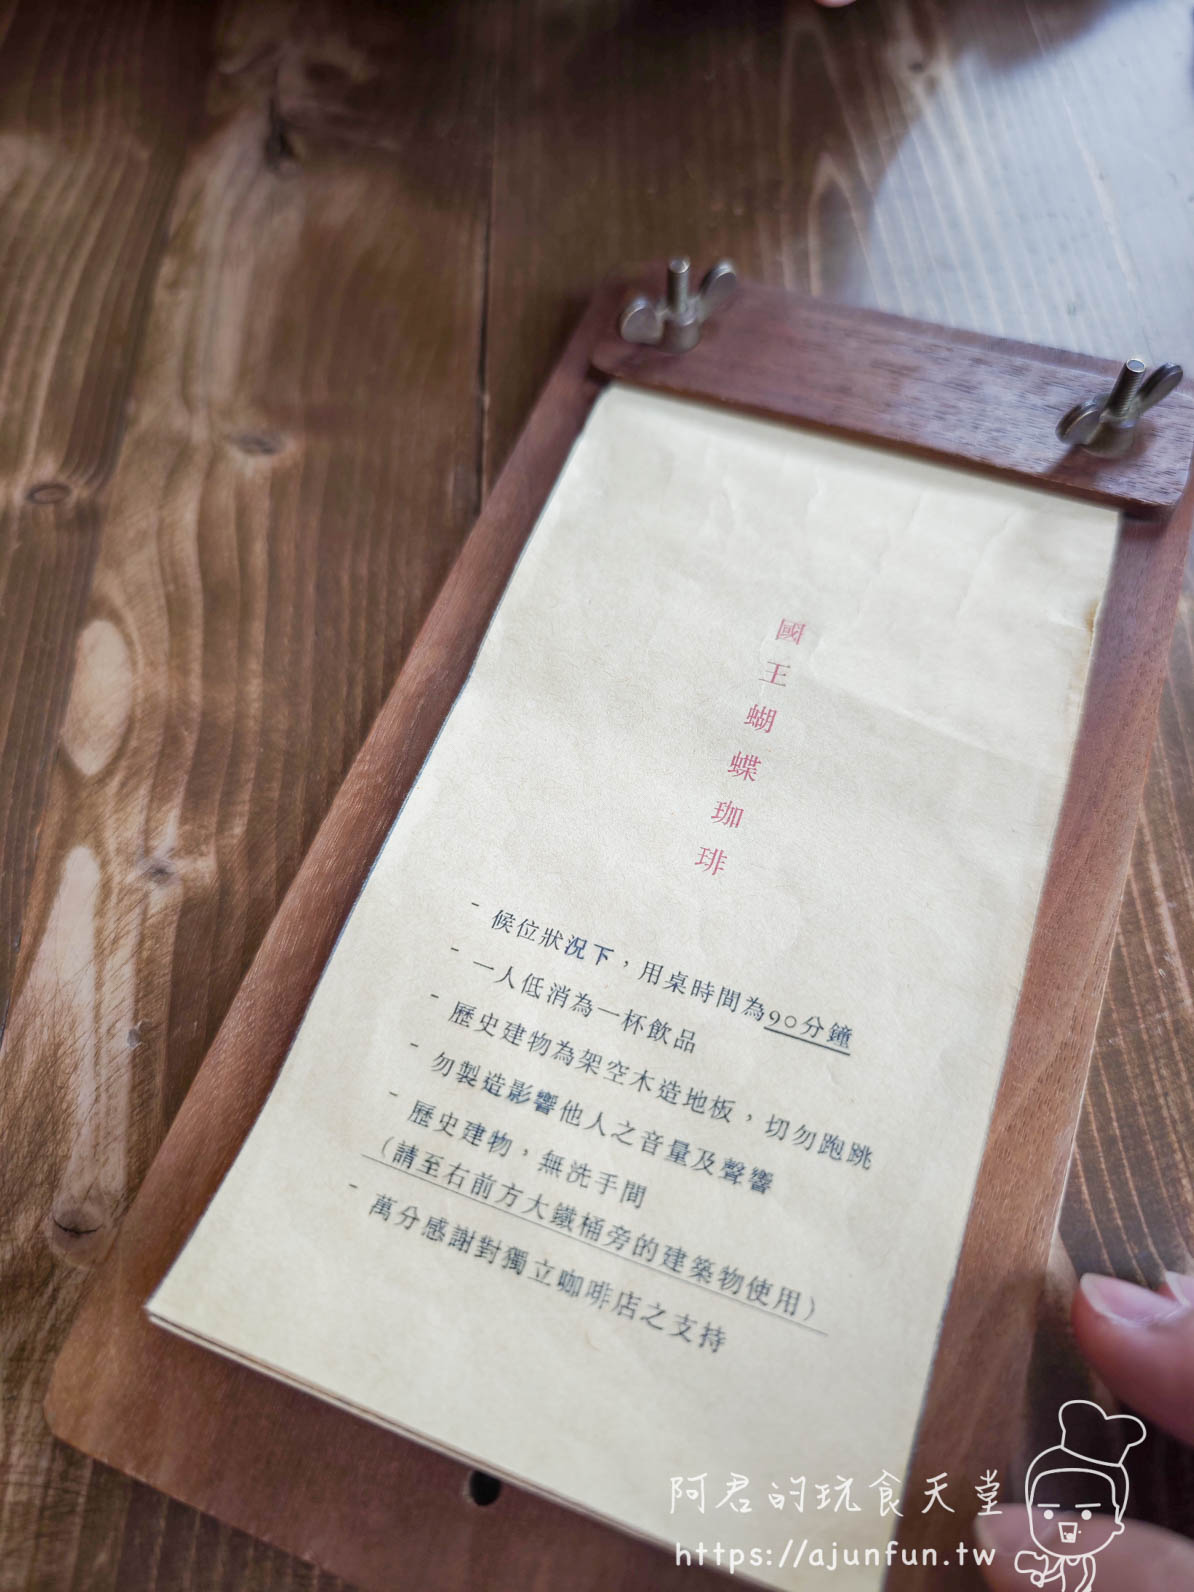 國王蝴蝶珈琲
- 候位狀況下，用桌時間為90分鐘
- 一人低消為一杯飲品
- 歷史建物為架空木造地板，切勿跑跳
- 勿製造影響他人之音量及聲響
- 歷史建物，無洗手間
（請至右前方大鐵桶旁的建築物使用）
- 萬分感謝對獨立咖啡店之支持
阿君的玩食天堂
https://ajunfun.tw